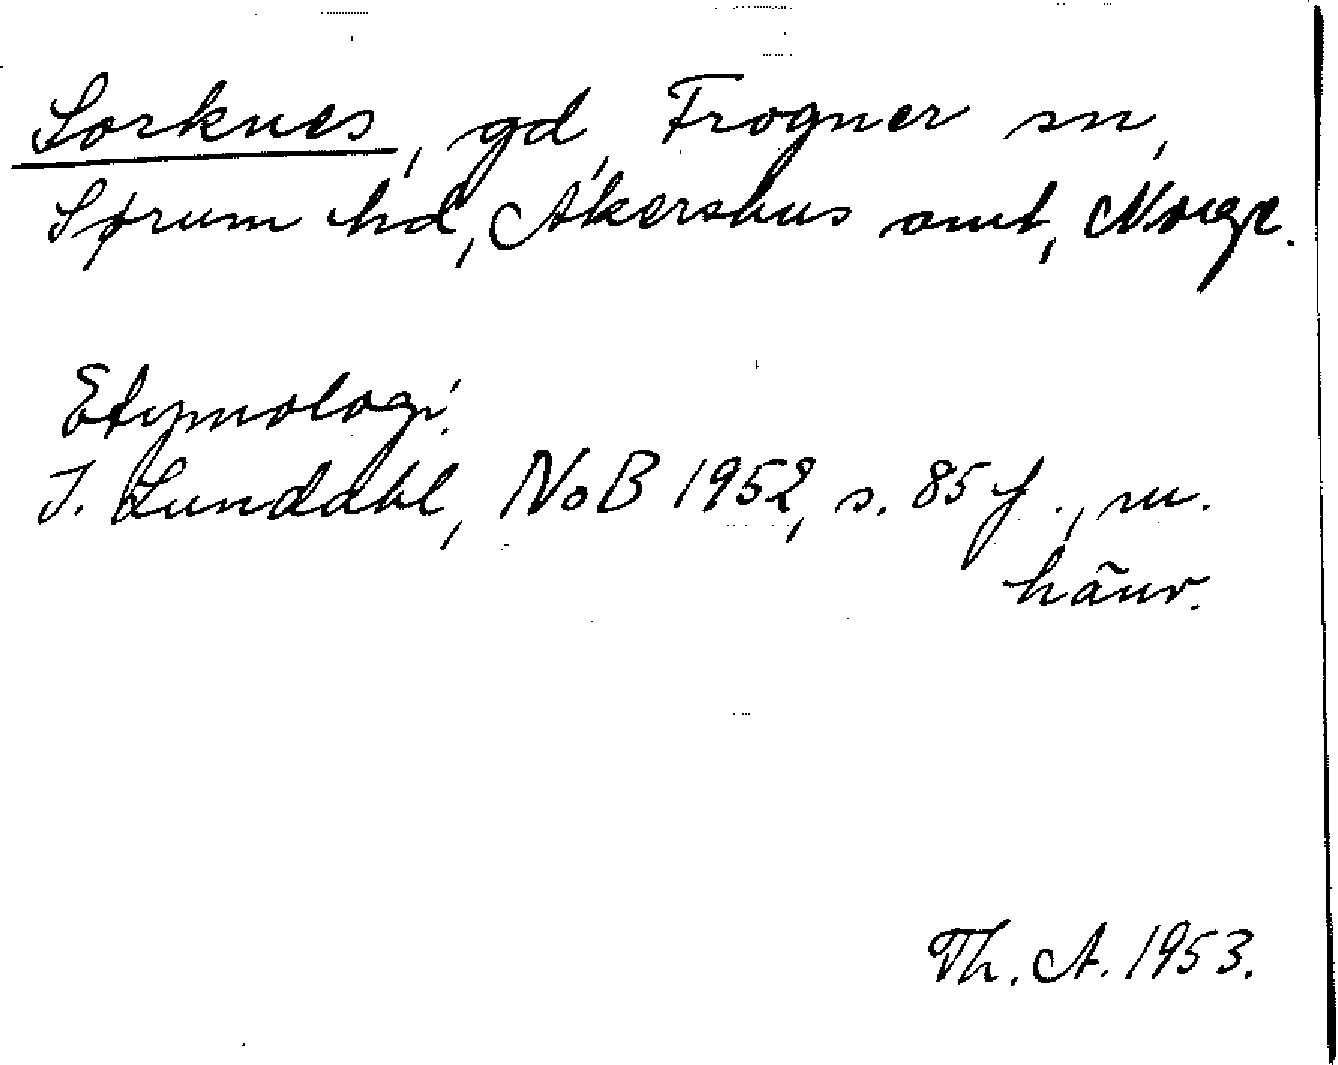 Sorknes, gd, Frogner sn,
Sørum hd, Akershus amt, Norge.
Etymologi.
I. Lundahl, NoB 1952, s. 85 f., m.
hänv.
Th. A. 1953.